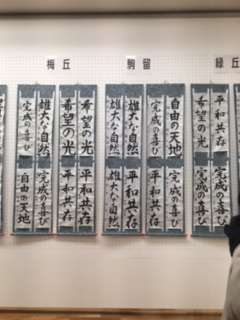 梅丘
駒留
緑丘
希望の光
希望の光
雄大な自然
完成の喜び
平和共存
平和共存
完成の喜び
自由の天地
自由の天地
完成の喜び
雄大な自然
雄大な自然
完成の喜び
完成の喜び
平和共存
雄大な自然
平和共存
希望の光
完成の喜び
完成の喜び